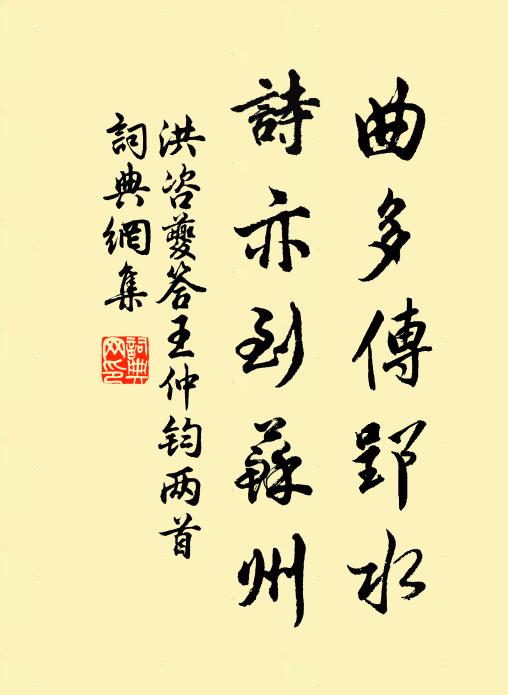 曲多傳郢水
詩亦到蘇州
洪咨夔答王仲鈞两首
詞典網集
詞典網印